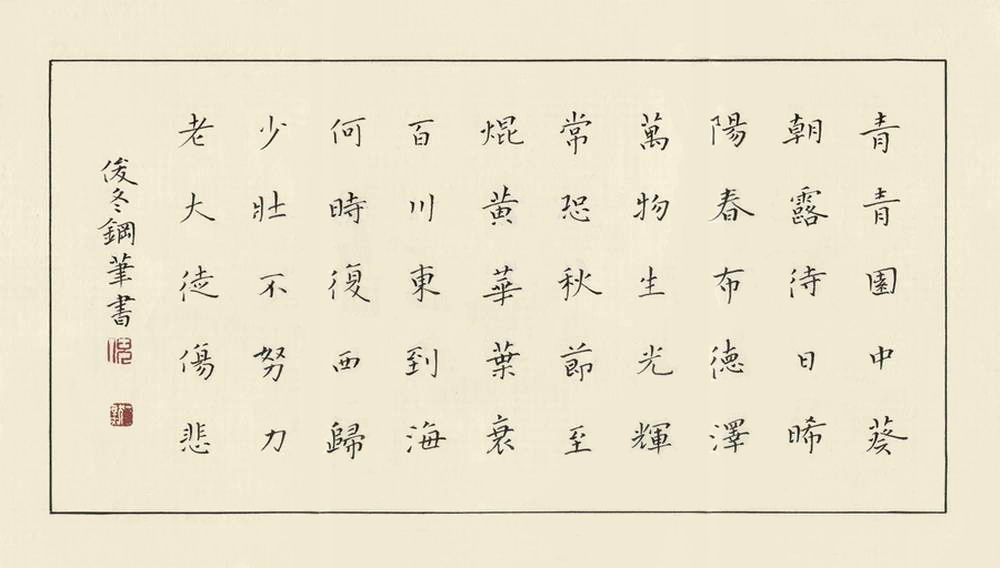 青青園中葵
朝露待日晞
陽春布德澤
萬物生光輝
常恐秋節至
焜黃華葉衰
百川東到海
何時復西歸
少壯不努力
老大徒傷悲
俊冬鋼筆書